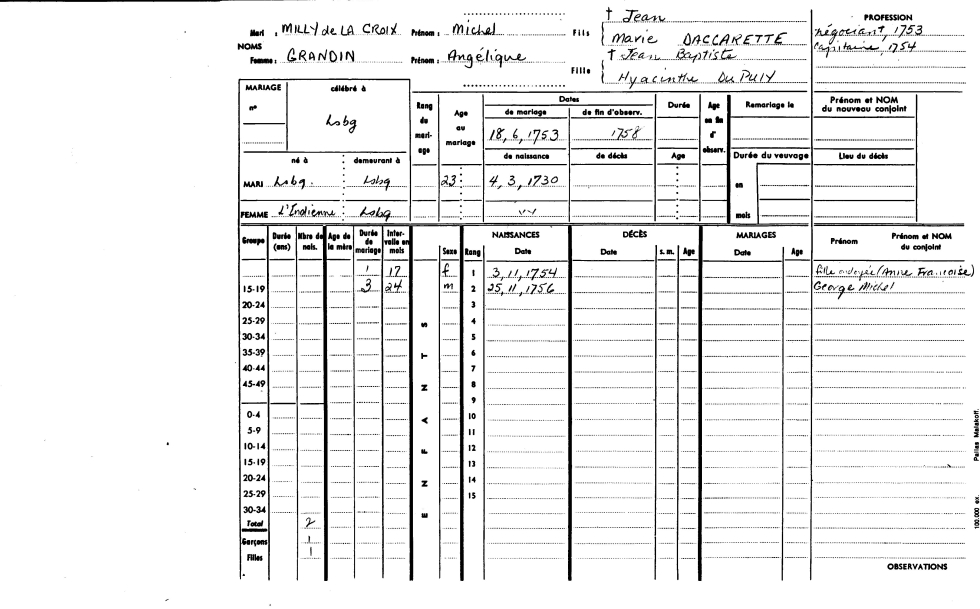 Mari : MILLY de LA CROIX Prénom : Michel Fils { † Jean
Marie DACCARETTE
NOMS
Femme : GRANDIN Prénom : Angélique Fille { † Jean Baptiste
Hyacinthe Du PUIY
PROFESSION
négociant, 1753
capitaine, 1754
MARIAGE célébré à
n° Lsbg
né à demeurant à
MARI Lsbg. Lsbg
FEMME L'Indienne Lsbg
Rang du mari-age
Age au mariage
23
Dates
de mariage de fin d'observ.
18, 6, 1753 1758
de naissance de décès
4, 3, 1730
Durée
Age
Age en fin d' observ.
Remariage le
Durée du veuvage
en
mois
Prénom et NOM du nouveau conjoint
Lieu du décès
Groupe Durée (ans) Nbre de nais. Age de la mère Durée de mariage Inter-valle en mois Sexe Rang NAISSANCES Date DÉCÈS Date s. m. Age MARIAGES Date Age Prénom Prénom et NOM du conjoint
1 17 f 1 3, 11, 1754 fille ondoyée (Anne Françoise)
15-19 3 24 m 2 25, 11, 1756 George Michel
20-24 3
25-29 4
30-34 5
35-39 6
40-44 7
45-49 8
9
0-4 10
5-9 11
10-14 12
15-19 13
20-24 14
25-29 15
30-34
Total 2
Garçons 1
Filles 1
ENFANTS
OBSERVATIONS
100.000 ex. Pailles Malakoff.